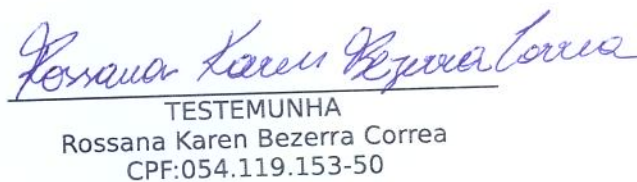 Rossana Karen Bezerra Correa
TESTEMUNHA
Rossana Karen Bezerra Correa
CPF:054.119.153-50